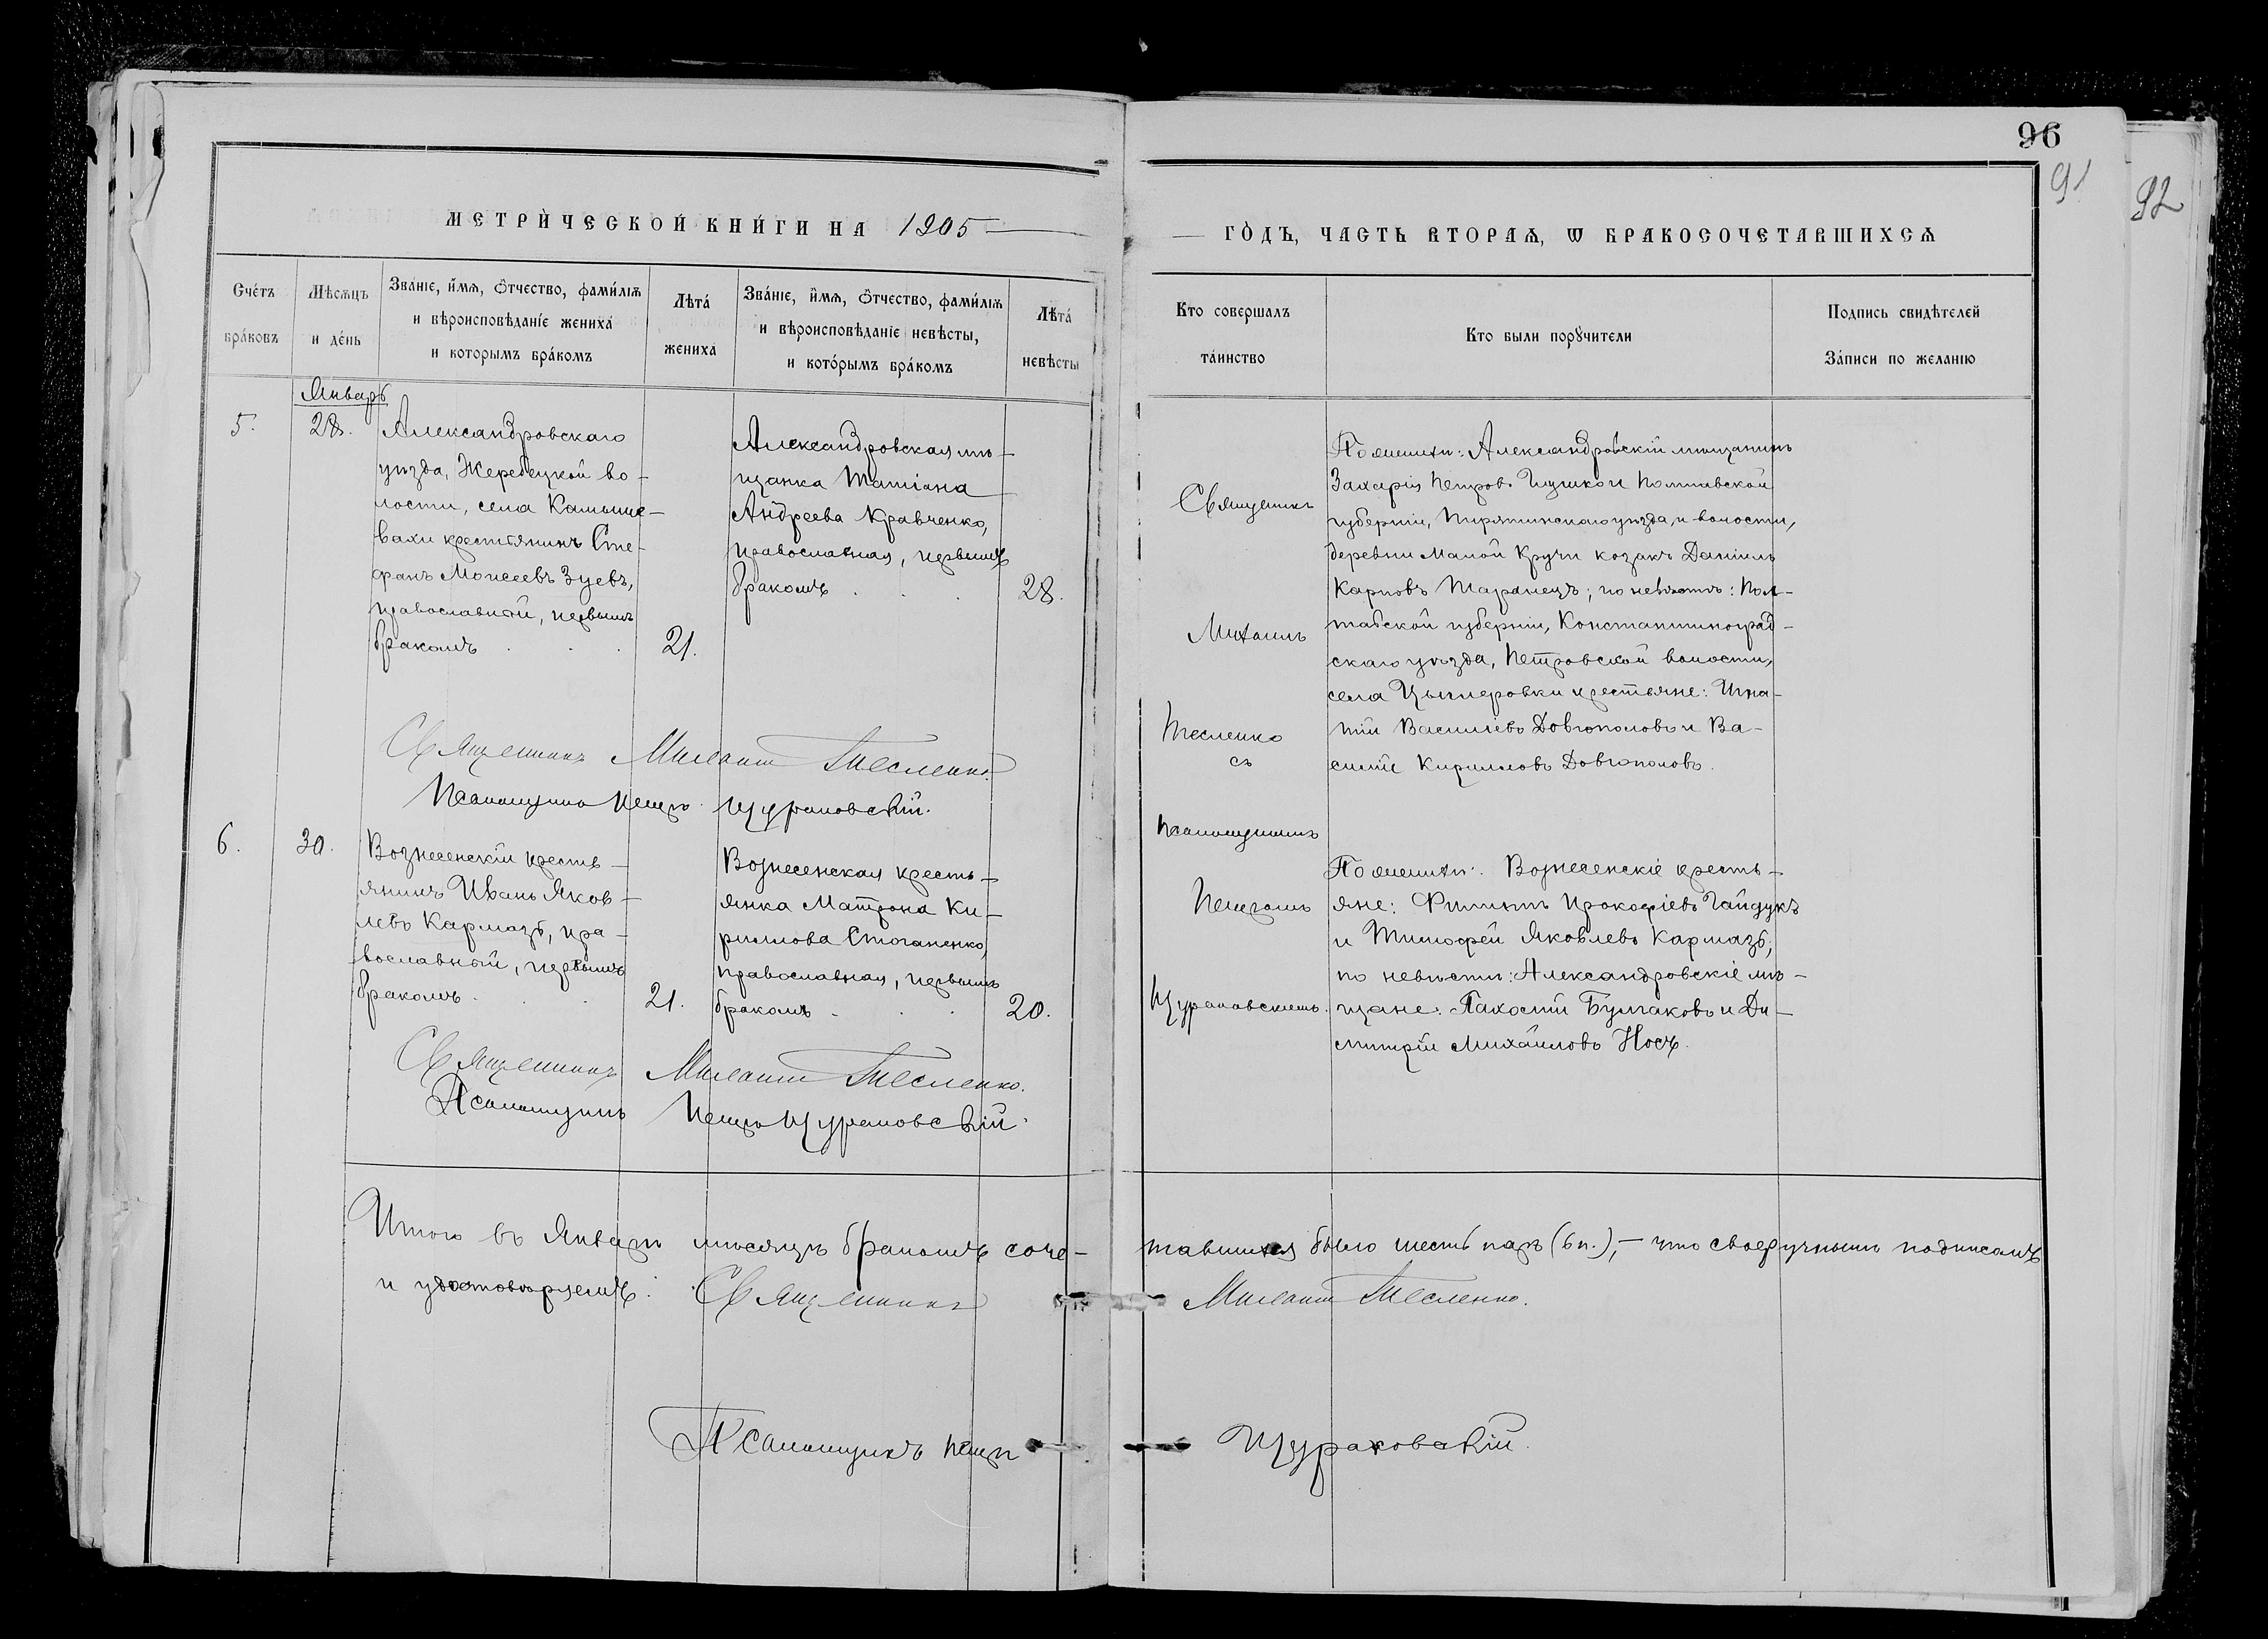 96
91
92
МЕТРИЧЕСКОЙ КНИГИ НА 1905
ГОДЪ, ЧАСТЬ ВТОРАѦ, Ѡ БРАКОСОЧЕТАВШИХСѦ
Счетъ браковъ
Мѣсѧцъ и день
Званіе, имѧ, ѻтчество, фамиліѧ
и вѣроисповѣданіе жениха
и которымъ бракомъ
Лѣта
жениха
Званіе, имѧ, ѻтчество, фамиліѧ
и вѣроисповѣданіе невѣсты,
и которымъ бракомъ
Лѣта
невѣсты
Кто совершалъ
таинство
Кто были порꙋчители
Подпись свидѣтелей
Записи по желанію
Январь
5.
28.
Александровскаго
уѣзда, Жеребецкой во-
лости, села Камыше-
вахи крестьянинъ Сте-
фанъ Моисеевъ Зуевъ,
православный, первымъ
бракомъ . . .
21.
Александровская мѣ-
щанка Татіана
Андреева Кравченко,
православная, первымъ
бракомъ . . .
28.
Священникъ
Михаилъ
Тесленко
съ
псаломщикомъ
Петромъ
Щураковскимъ.
По женихѣ: Александровскій мѣщанинъ
Захарія Петровъ и Полтавской
губерніи, Пирятинскаго уѣзда, и волости,
деревни Малой Кручи козакъ Даніилъ
Карповъ Таранецъ; по невѣстѣ: Пол-
тавской губерніи, Константиноград-
скаго уѣзда, Петровской волости,
села крестьяне: Игна-
тій Василіевъ Довгополовъ и Ва-
силій Кирилловъ Довгополовъ.
Священникъ Михаилъ Тесленко.
Псаломщикъ Петръ Щураковскій.
6.
30.
Вознесенскій кресть-
янинъ Иванъ Яков-
левъ Кармазь, пра-
вославный, первымъ
бракомъ . . .
21.
Вознесенская кресть-
янка Матрона Ки-
риллова Стоганенко,
православная, первымъ
бракомъ . . .
20.
По женихѣ: Вознесенскіе кресть-
яне: Филиппъ Прокофіевъ Гайдукъ
и Тимофей Яковлевъ Кармазь;
по невѣстѣ: Александровскіе мѣ-
щане: Булгаковъ и Ди-
митрій Михаиловъ Носъ.
Священникъ Михаилъ Тесленко.
Псаломщикъ Петръ Щураковскій.
Итого въ Январѣ мѣсяцѣ бракомъ соче-тавшихся было шесть паръ (6 п.), - что своеручнымъ подписомъ
и удостовѣряемъ: Священникъ Михаилъ Тесленко.
Псаломщикъ Петръ Щураковскій.